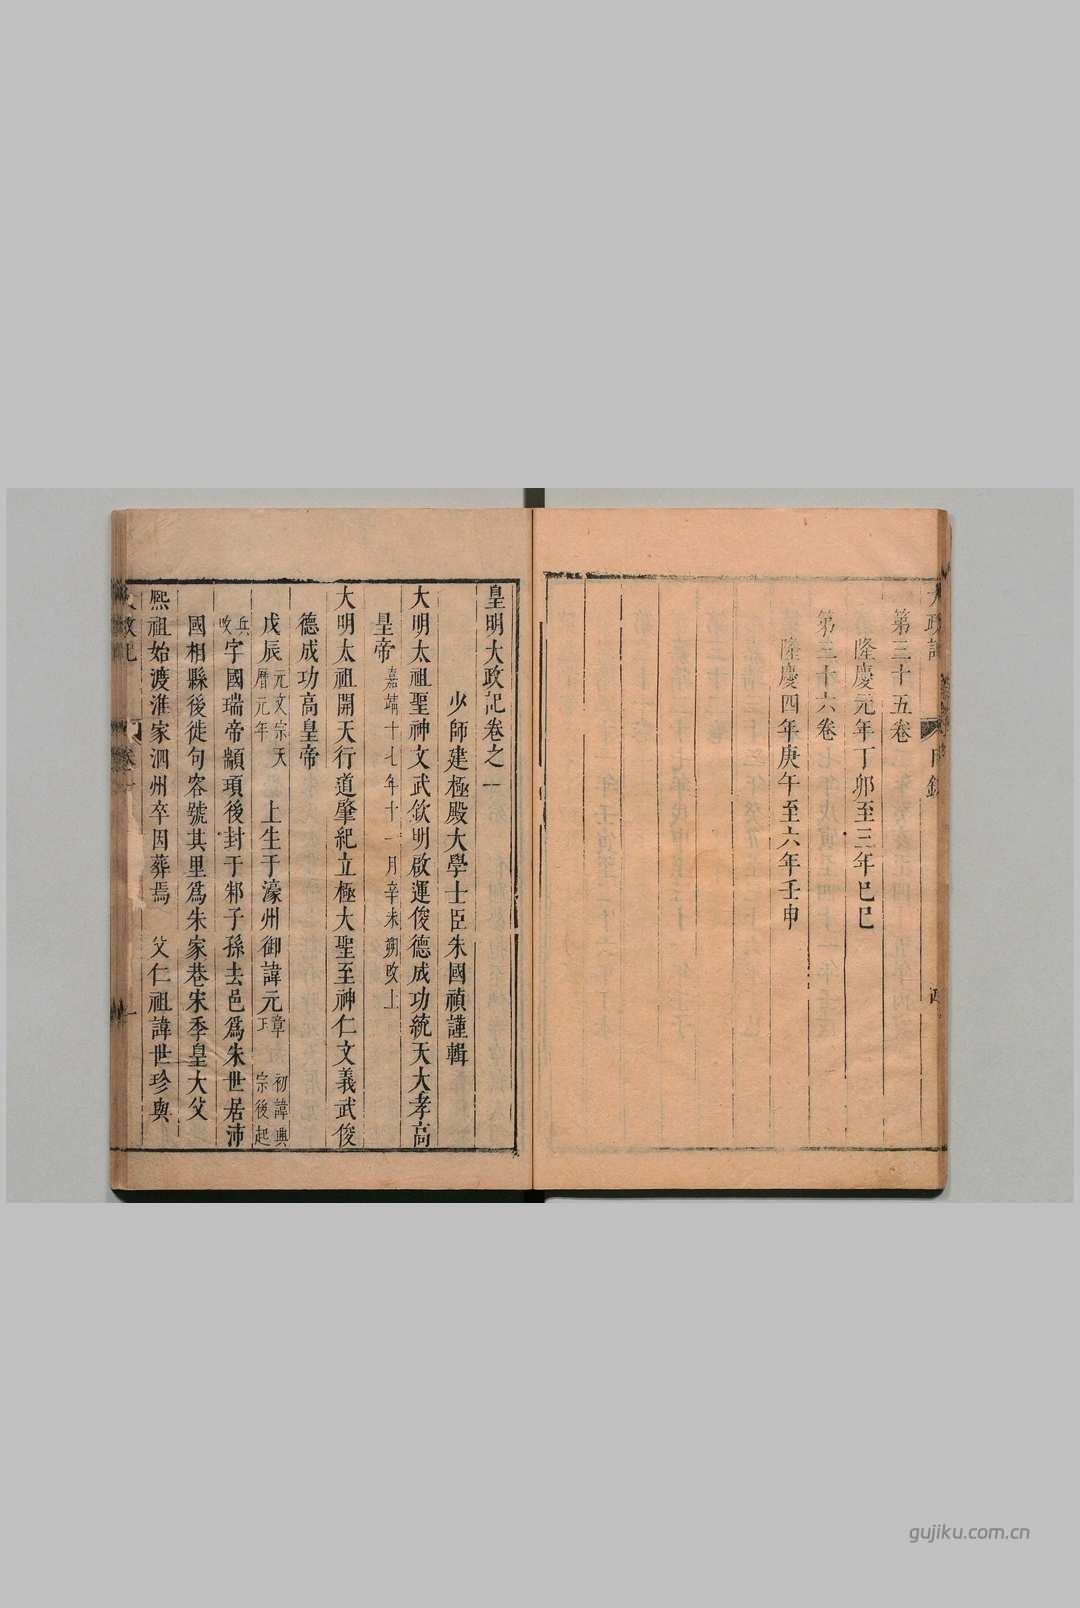 第三十五卷
隆慶元年丁卯至三年巳巳
第三十六卷
隆慶四年庚午至六年壬申
皇明大政記卷之一
少師建極殿大學士臣朱國禎謹輯
大明太祖聖神文武欽明啟運俊德成功統天大孝高
皇帝嘉靖十七年十一月辛未朔改上
大明太祖開天行道肇紀立極大聖至神仁文義武俊
德成功高皇帝
戊辰元文宗天曆元年 上生于濠州御諱元章 初諱興宗後起
兵改字國瑞帝顓頊後封于邾子孫去邑爲朱世居沛
國相縣後徙句容號其里爲朱家巷宋季皇大父
熈祖始渡淮家泗州卒因葬焉 父仁祖諱世珍與
gujiku.com.cn